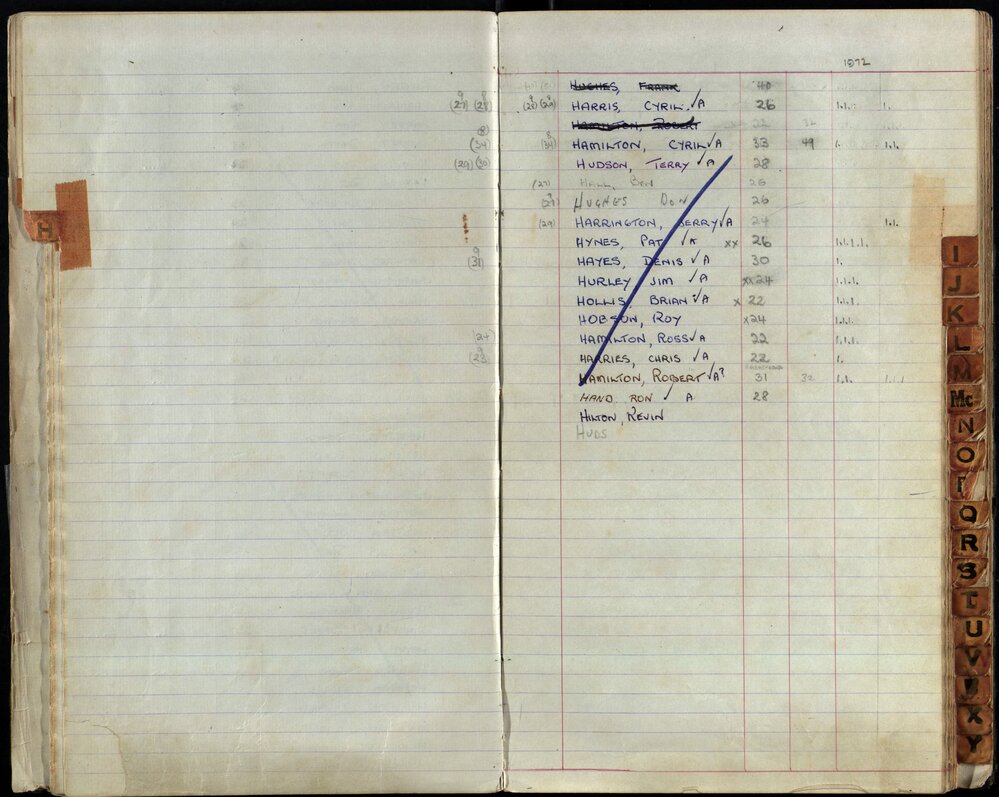 1972
HUGHES, FRANK 40
(27) (28) (28) (29) HARRIS, CYRIL. ✓A 26 1.1.: 1.
HAMILTON, ROBERT 22 32 1.1.
(8)
(34) (34) HAMILTON, CYRIL ✓A 33 49 1. 1.1.
(29) (30) HUDSON, TERRY ✓A 28
(27) HALL, 26
HUGHES DON 26
(29) HARRINGTON, GERRY ✓A 24 1.1.
H
HYNES, PAT ✓A xx 26 1.1.1.1.
(31) HAYES, DENIS ✓A 30 1.
HURLEY JIM ✓A xx 24 1.1.1.
HOLLIS, BRIAN ✓A x 22 1.1.1.
HOBSON, ROY x 24 1.1.1.
(24) HAMILTON, ROSS ✓A 22 1.1.1.
(23) HARRIES, CHRIS ✓A 22 1.
HAMILTON, ROBERT ✓A? 31 32 1.1. 1.1.1
HAND RON ✓ A 28
HILTON, KEVIN
HUDS
I
J
K
L
M
Mc
N
O
Q
R
S
T
U
V
X
Y